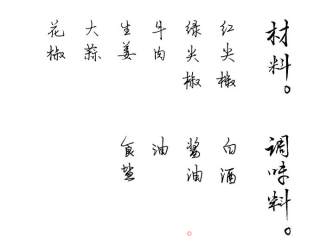 材料。
红尖椒
绿尖椒
牛肉
生姜
大蒜
花椒
调味料。
白酒
酱油
油
食盐